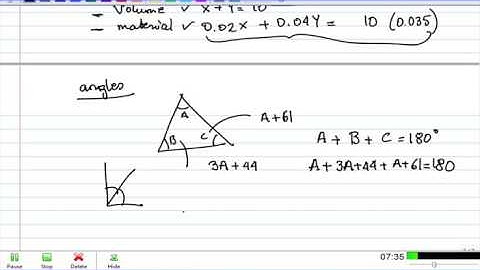 = Volume ✓ X + Y = 10
= material ✓ 0.02X + 0.04Y = 10 (0.035)
angles
A
A+61
B
C
A + B + C = 180°
3A + 44
A + 3A+44 + A+61=180
07:35
Pause Stop Delete Hide